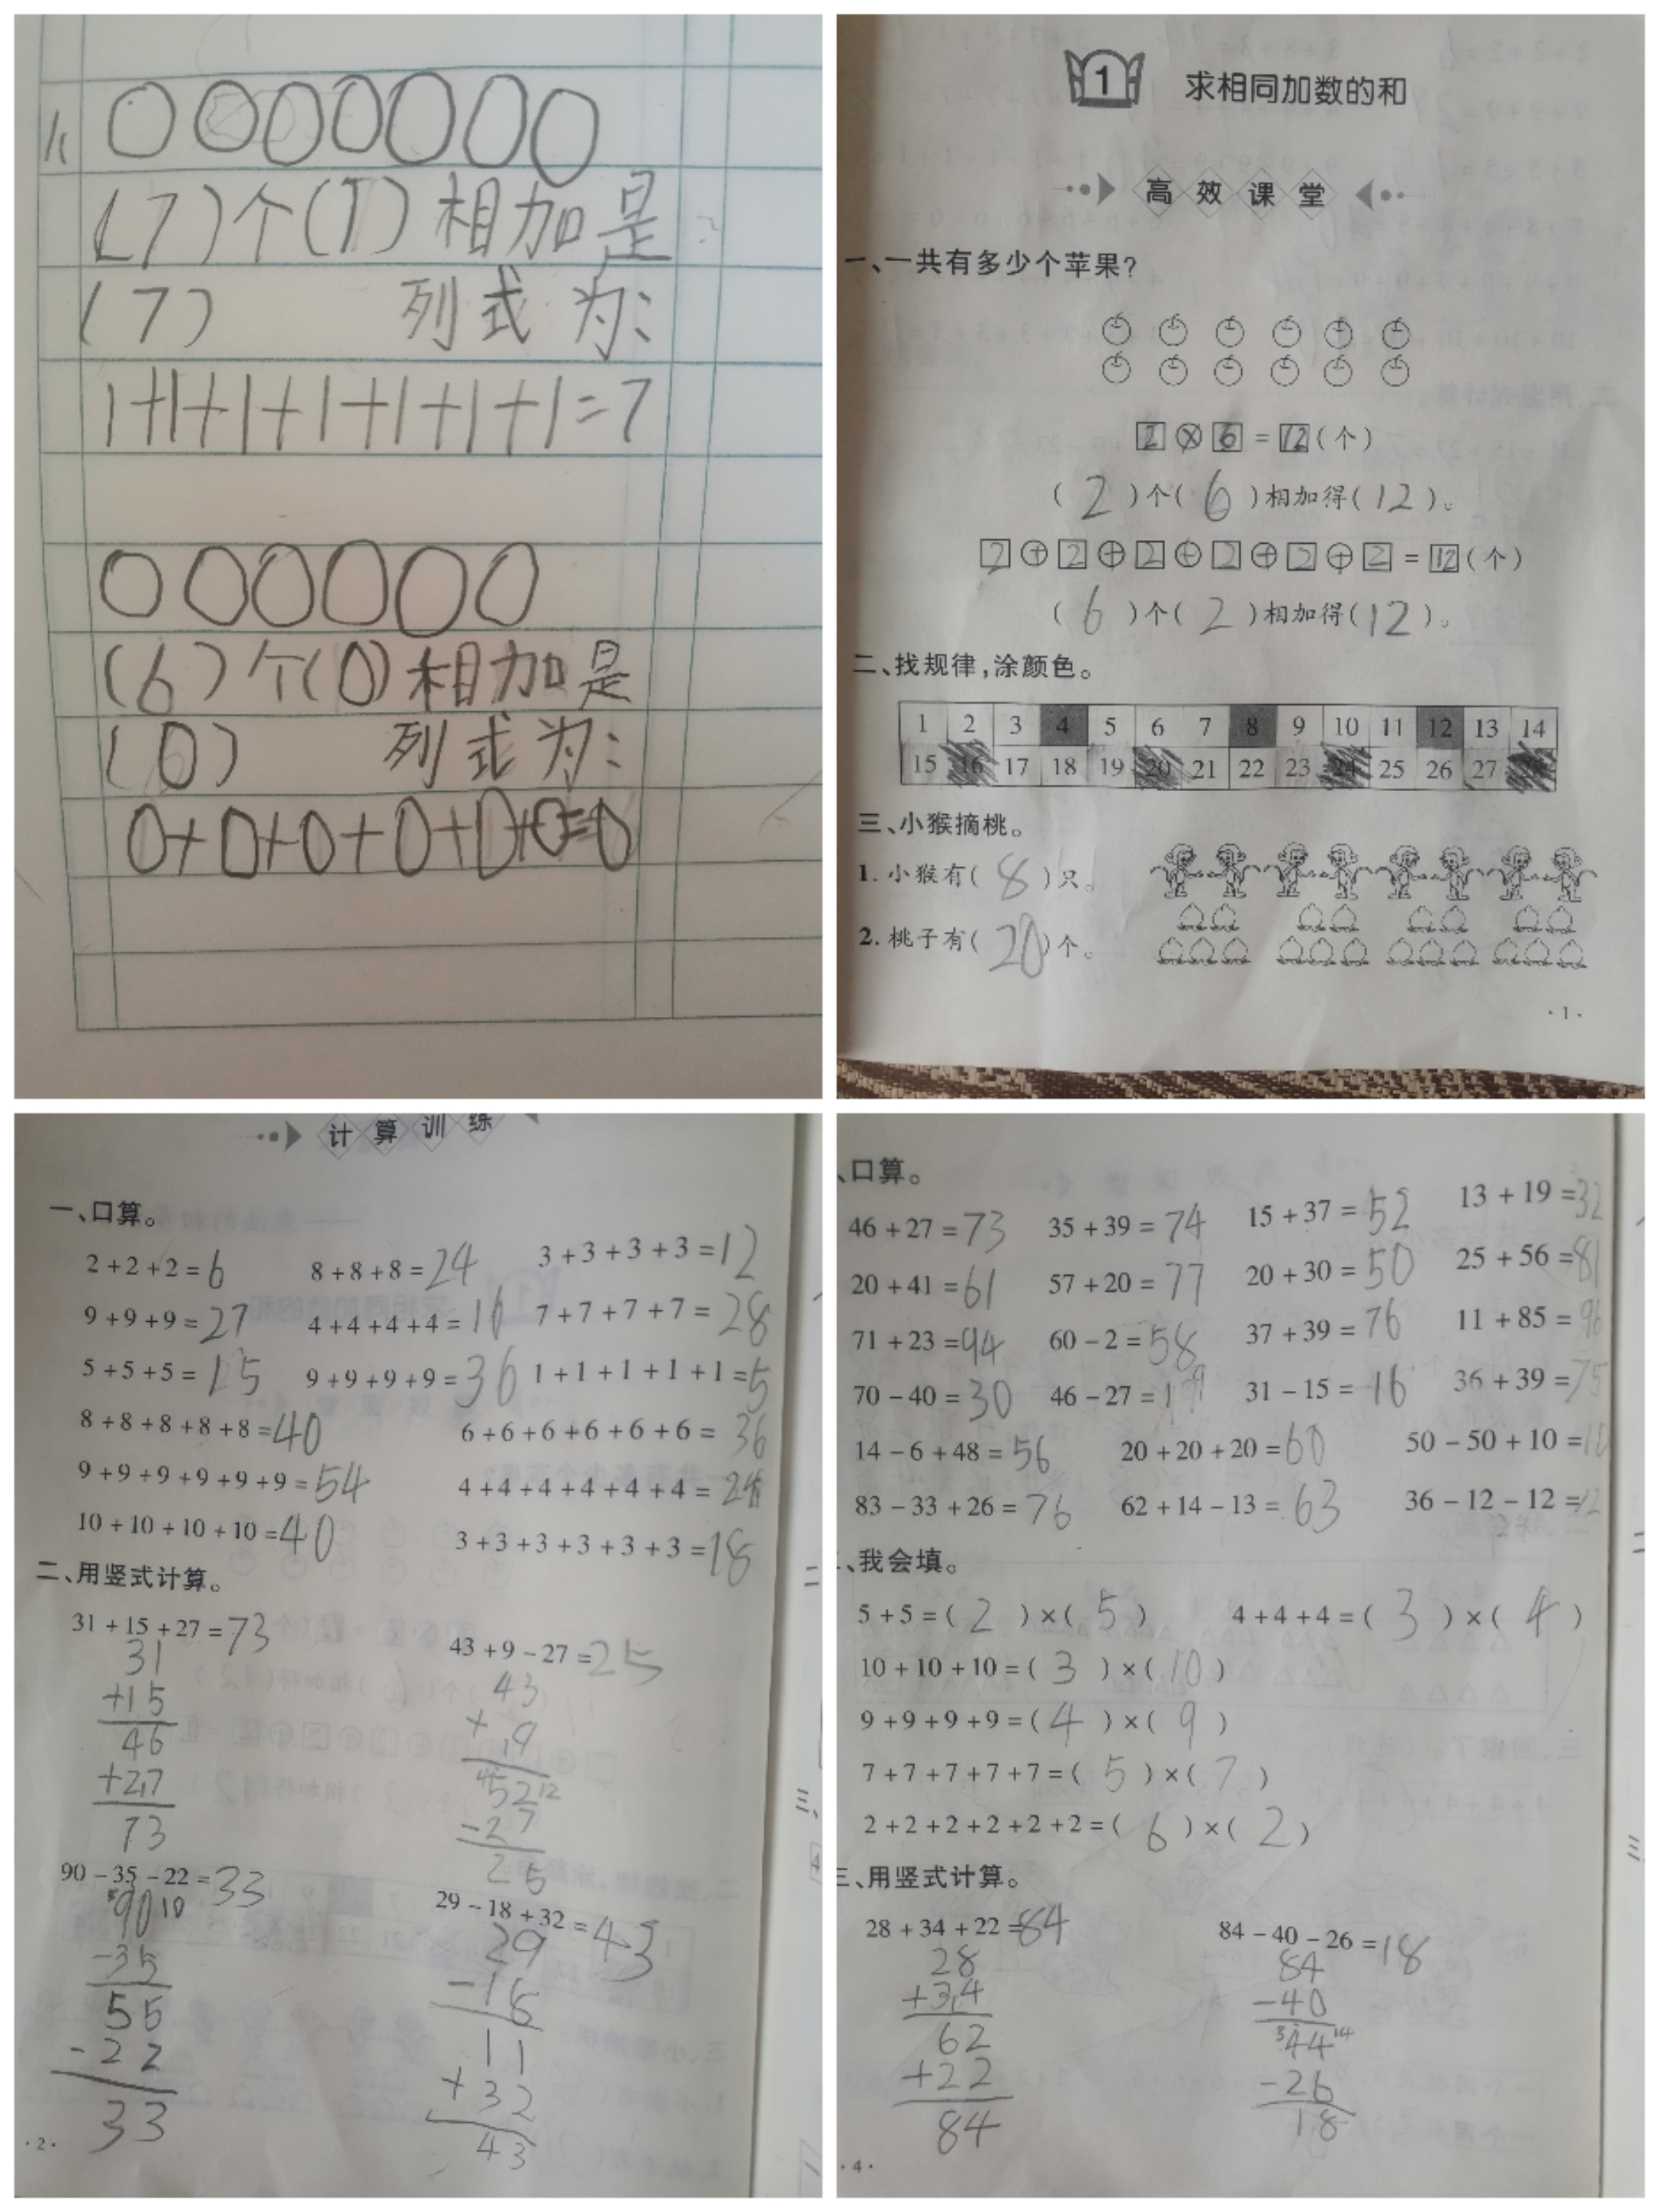 1.
(7)个(1)相加是
(7) 列式为:
1+1+1+1+1+1+1=7
(6)个(0)相加是
(0) 列式为:
0+0+0+0+0+0=0
1 求相同加数的和
高效课堂
一、一共有多少个苹果?
2×6=12(个)
(2)个(6)相加得(12)。
2+2+2+2+2+2=12(个)
(6)个(2)相加得(12)。
二、找规律,涂颜色。
1 2 3 4 5 6 7 8 9 10 11 12 13 14
15 16 17 18 19 20 21 22 23 24 25 26 27
三、小猴摘桃。
1.小猴有(8)只。
2.桃子有(20)个。
·1·
计算训练
一、口算。
2+2+2=6 8+8+8=24 3+3+3+3=12
9+9+9=27 4+4+4+4=16 7+7+7+7=28
5+5+5=15 9+9+9+9=36 1+1+1+1+1=5
8+8+8+8+8=40 6+6+6+6+6+6=36
9+9+9+9+9+9=54 4+4+4+4+4+4=24
10+10+10+10=40 3+3+3+3+3+3=18
二、用竖式计算。
31+15+27=73 43+9-27=25
31 43
+15 +9
46 52
+27 -27
73 25
90-35-22=33 29-18+32=43
90 29
-35 -18
55 11
-22 +32
33 43
·2·
、口算。
46+27=73 35+39=74 15+37=52 13+19=32
20+41=61 57+20=77 20+30=50 25+56=81
71+23=94 60-2=58 37+39=76 11+85=96
70-40=30 46-27=19 31-15=16 36+39=75
14-6+48=56 20+20+20=60 50-50+10=10
83-33+26=76 62+14-13=63 36-12-12=12
24
、我会填。
5+5=(2)×(5) 4+4+4=(3)×(4)
10+10+10=(3)×(10)
9+9+9+9=(4)×(9)
7+7+7+7+7=(5)×(7)
2+2+2+2+2+2=(6)×(2)
三、用竖式计算。
28+34+22=84 84-40-26=18
28 84
+34 -40
62 44
+22 -26
84 18
·4·